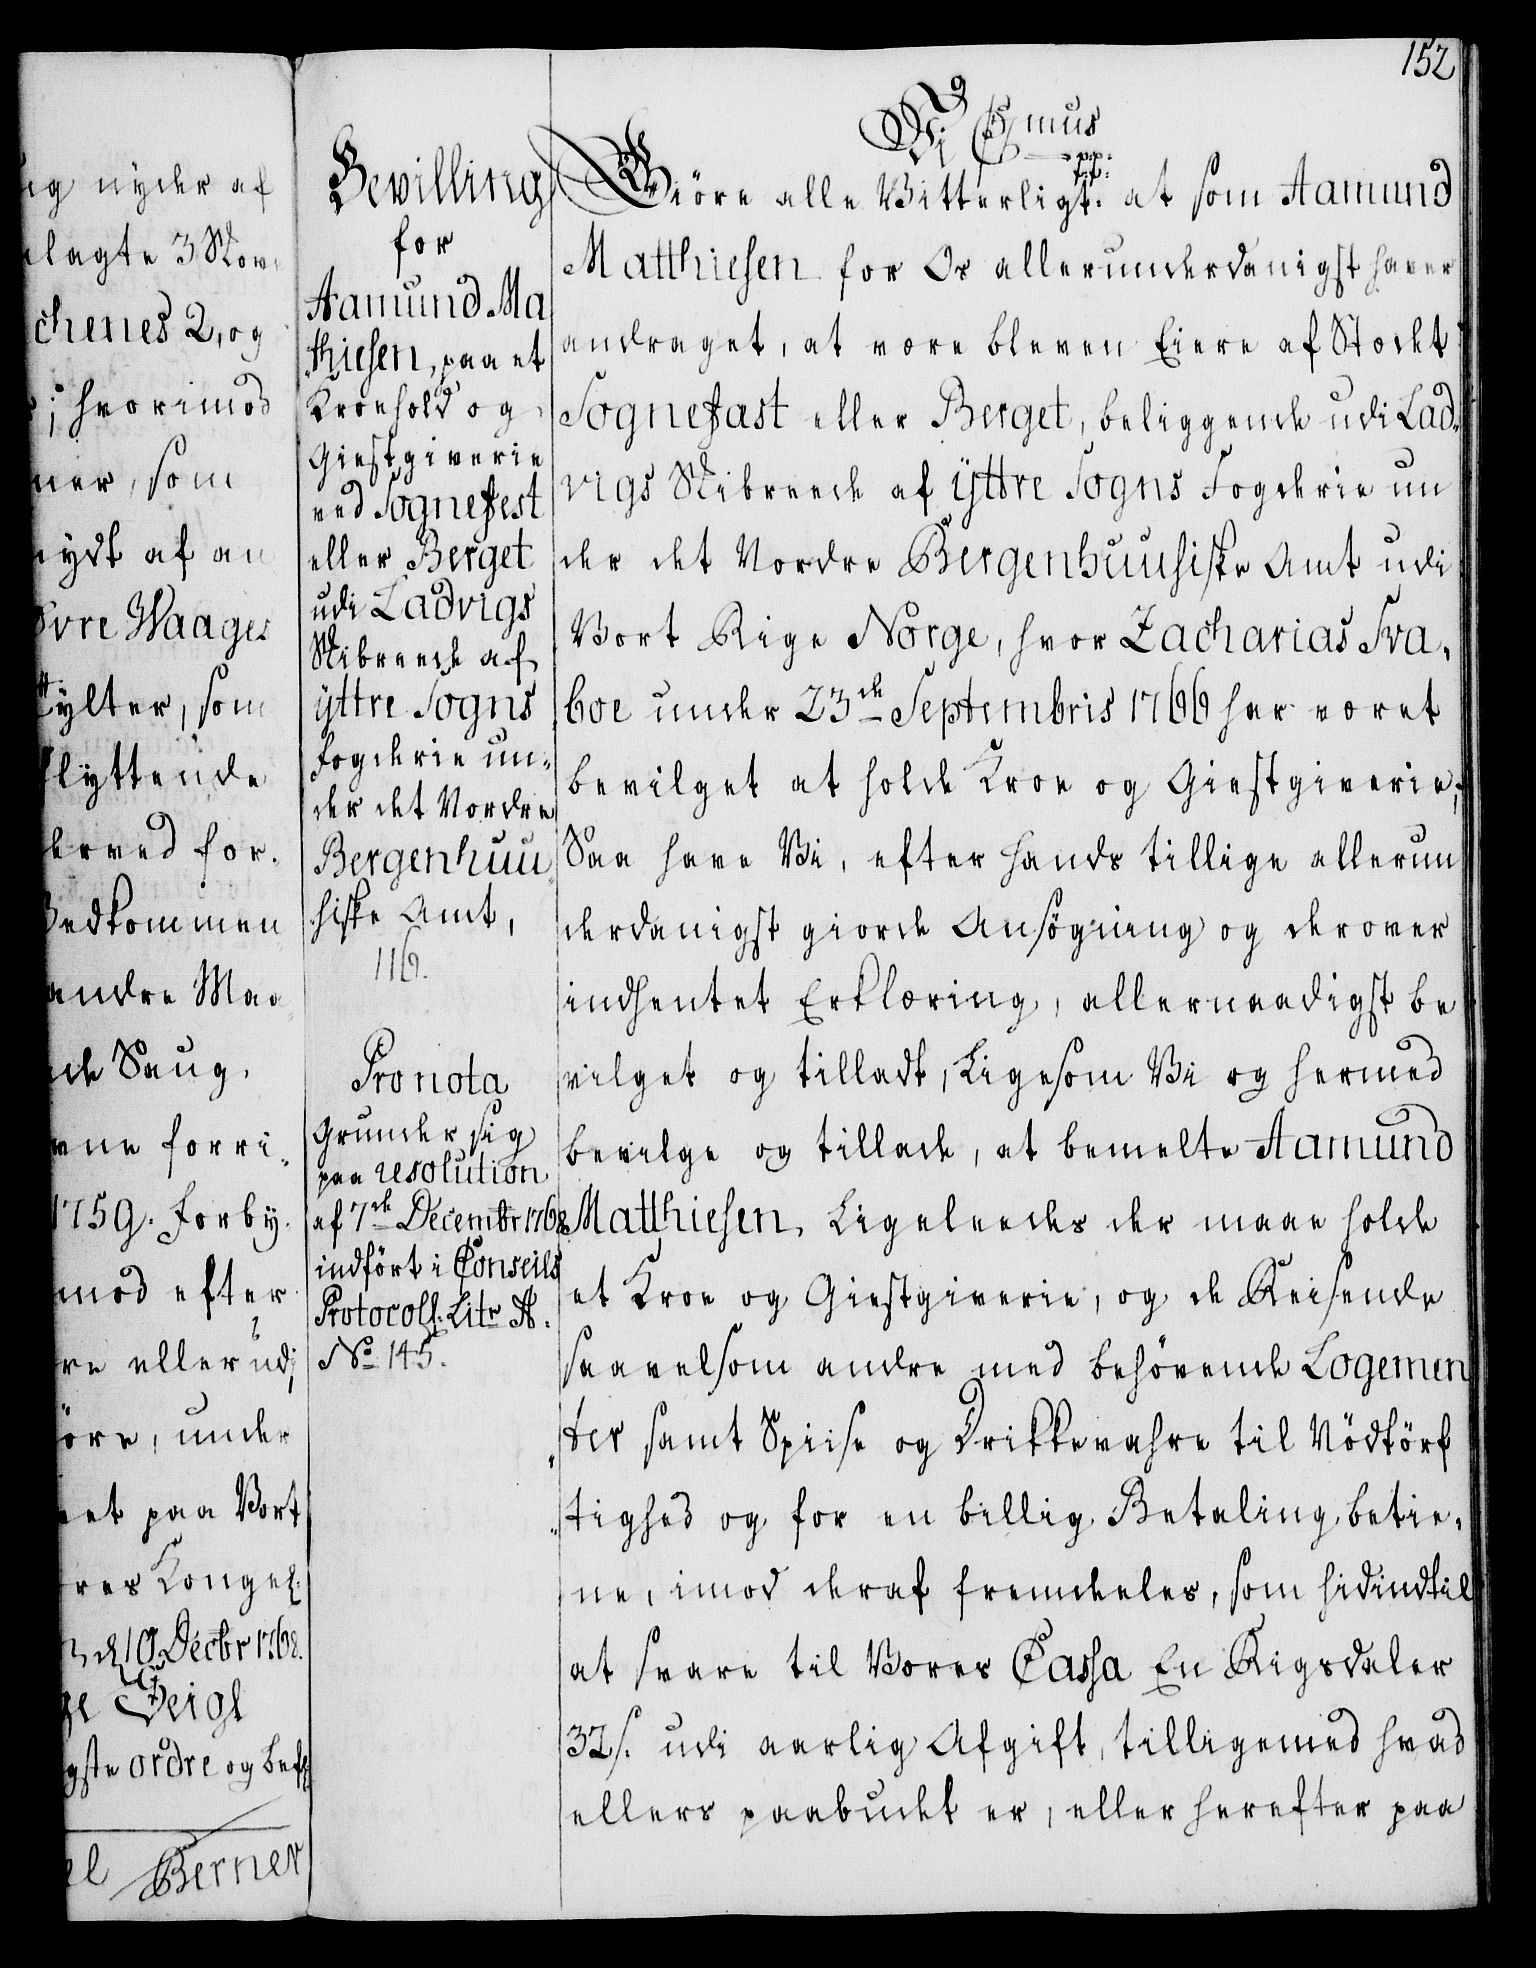 152
ug nyder af
elagte 3 Nove
chenes 2, og
; hvorimod
ner, som
nydt af an
Øvre Waages
Tylter, som
flyttende
derved for-
Vedkommen
andre Maa
de Saug,
vne forri-
1759. forby-
mod efter
re eller udi
öre, under
et paa Vort
res Kongel.
d 10 Decbr 1768.
Weigl
gste ordre og befl
el Berner
Bevilling
for
Aamund Ma
thiesen, paa et
Kroehold og
Giestgiverie
ved Sognefest
eller Berget
udi Ladvigs
Skibreede af
ÿttre Sogns
Fogderie un-
der det Nordre
Bergenhuu-
siske Amt,
116.
Pro nota
Grunder sig
paa resolution
af 7de Decembr 1768
indfört i Conseils
Protocoll: Litr A.
No 145.
Vi C 7mus
p.p:
t:t:
Giöre alle Vitterligt: at som Aamund
Matthiesen for Os allerunderdanigst haver
andraget, at være bleven Eiere af Stædet
Sognefast eller Berget, beliggende udi Lad-
vigs Skibreede af ÿttre Sogns Fogderie un
der det Nordre Bergenhuusiske Amt udi
Vort Rige Norge, hvor Zacharias Sva-
boe under 23de Septembris 1766 har været
bevilget at holde Kroe og Giestgiverie;
Saa have Vi, efter hands tillige allerun
derdanigst giorde Ansögning og derover
indhentet Erklæring, allernaadigst be
vilget og tilladt, Ligesom Vi og hermed
bevilge og tillade, at bemelte Aamund
Matthiesen, Ligeleedes der maae holde
et Kroe og Giestgiverie, og de Reisende
saavelsom andre med behövende Logemen
ter samt Spiise og Drikkevahre til Nödtörf
tighed og for en billig Betaling betie-
ne, imod deraf fremdeles, som hidindtil
at svare til Vores Cassa En Rigsdaler
32 s. udi aarlig Afgift, tilligemed hvad
ellers paabudet er, eller herefter paa